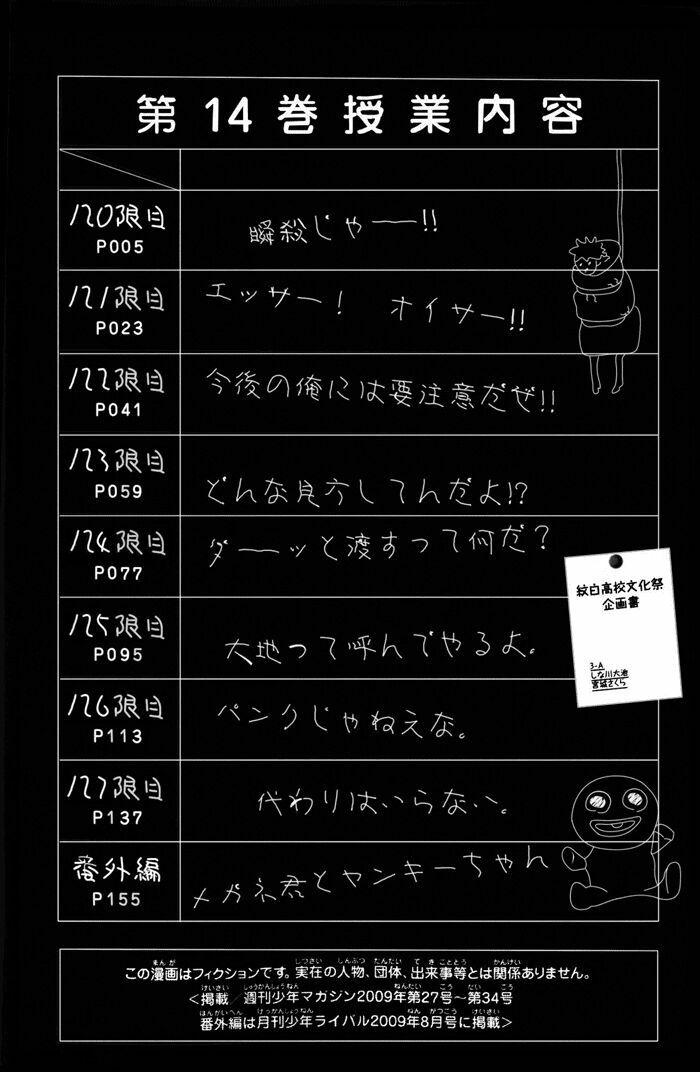 第14巻授業内容
120限目
P005
瞬殺じゃーー!!
121限目
P023
エッサー! オイサー!!
122限目
P041
今後の俺には要注意だぜ!!
123限目
P059
どんな見方してんだよ!?
124限目
P077
ダーーッと渡すって何だ?
125限目
P095
大地って呼んでやるよ。
126限目
P113
パンクじゃねえな。
127限目
P137
代わりはいらない。
番外編
P155
メガネ君とヤンキーちゃん
紋白高校文化祭
企画書
3-A
しな川大地
宮城さくら
この漫画はフィクションです。実在の人物、団体、出来事等とは関係ありません。
<掲載／週刊少年マガジン2009年第27号〜第34号
番外編は月刊少年ライバル2009年8月号に掲載>